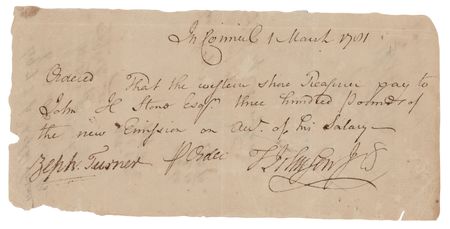 In Council 1 March 1781
Ordered That the western shore Treasurer pay to
John H Stone Esqr. three hundred Pounds of
the new Emission on Acct. of his Salary
Zeph. Turner P Order T Johnson Jr